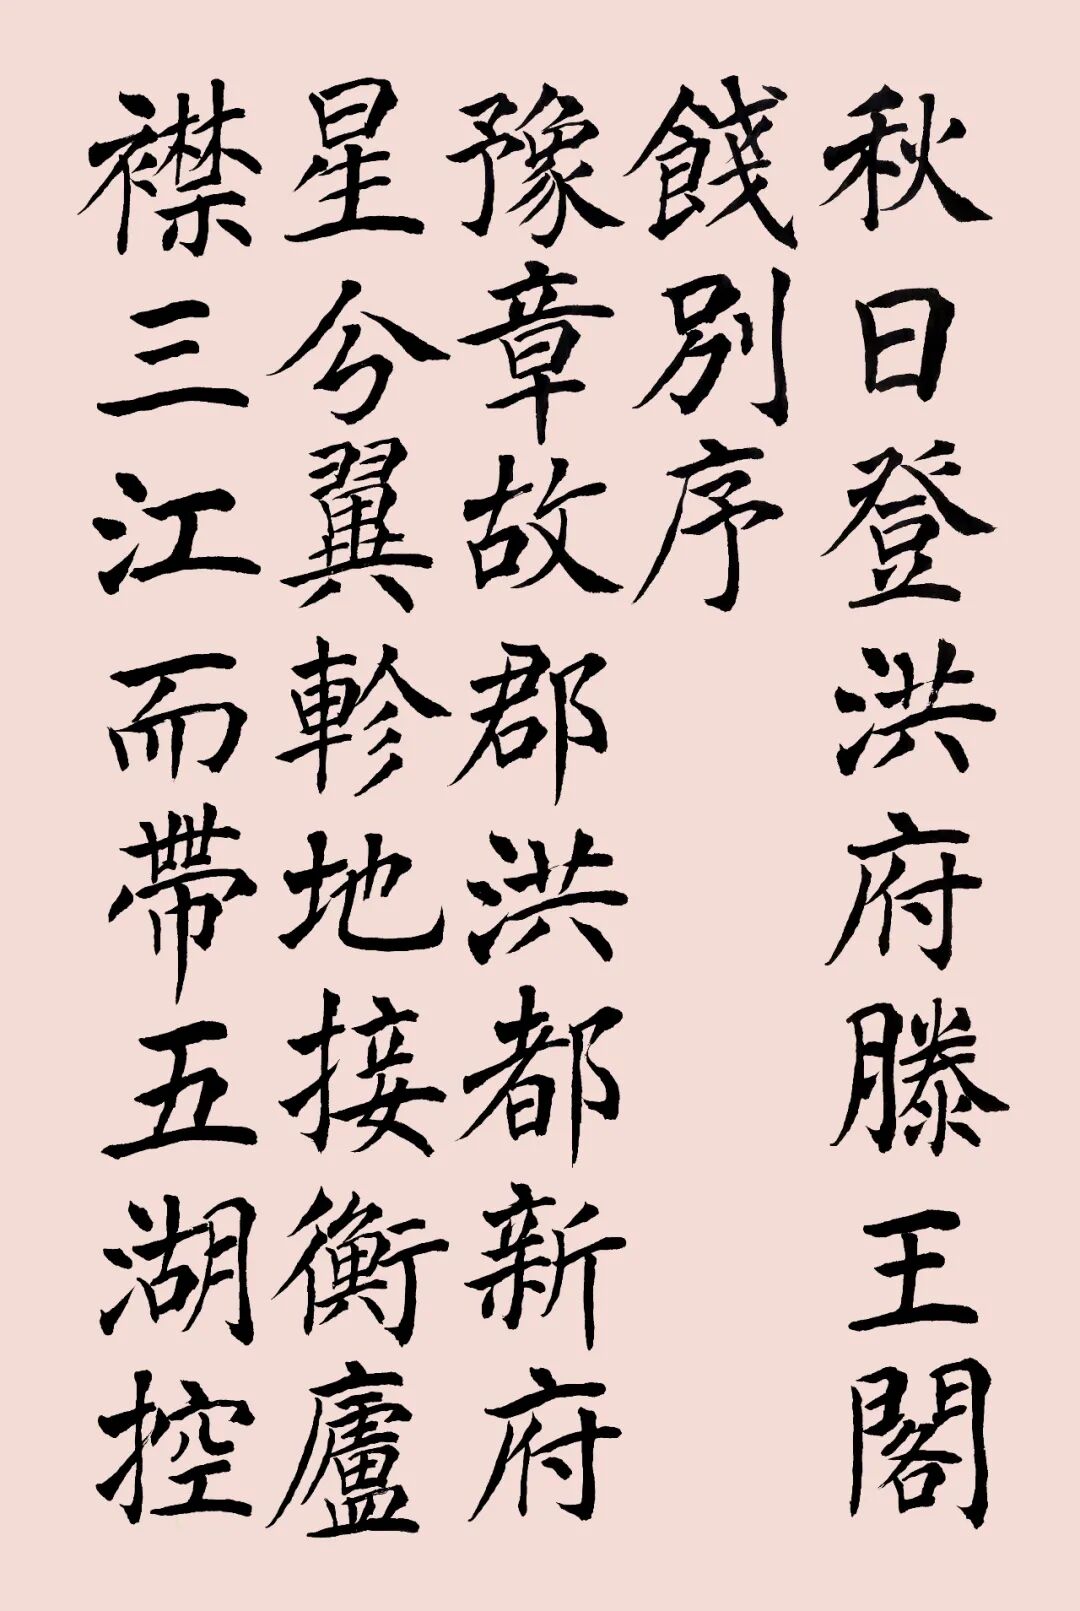 秋日登洪府滕王閣
餞別序
豫章故郡洪都新府
星兮翼軫地接衡廬
襟三江而帶五湖控